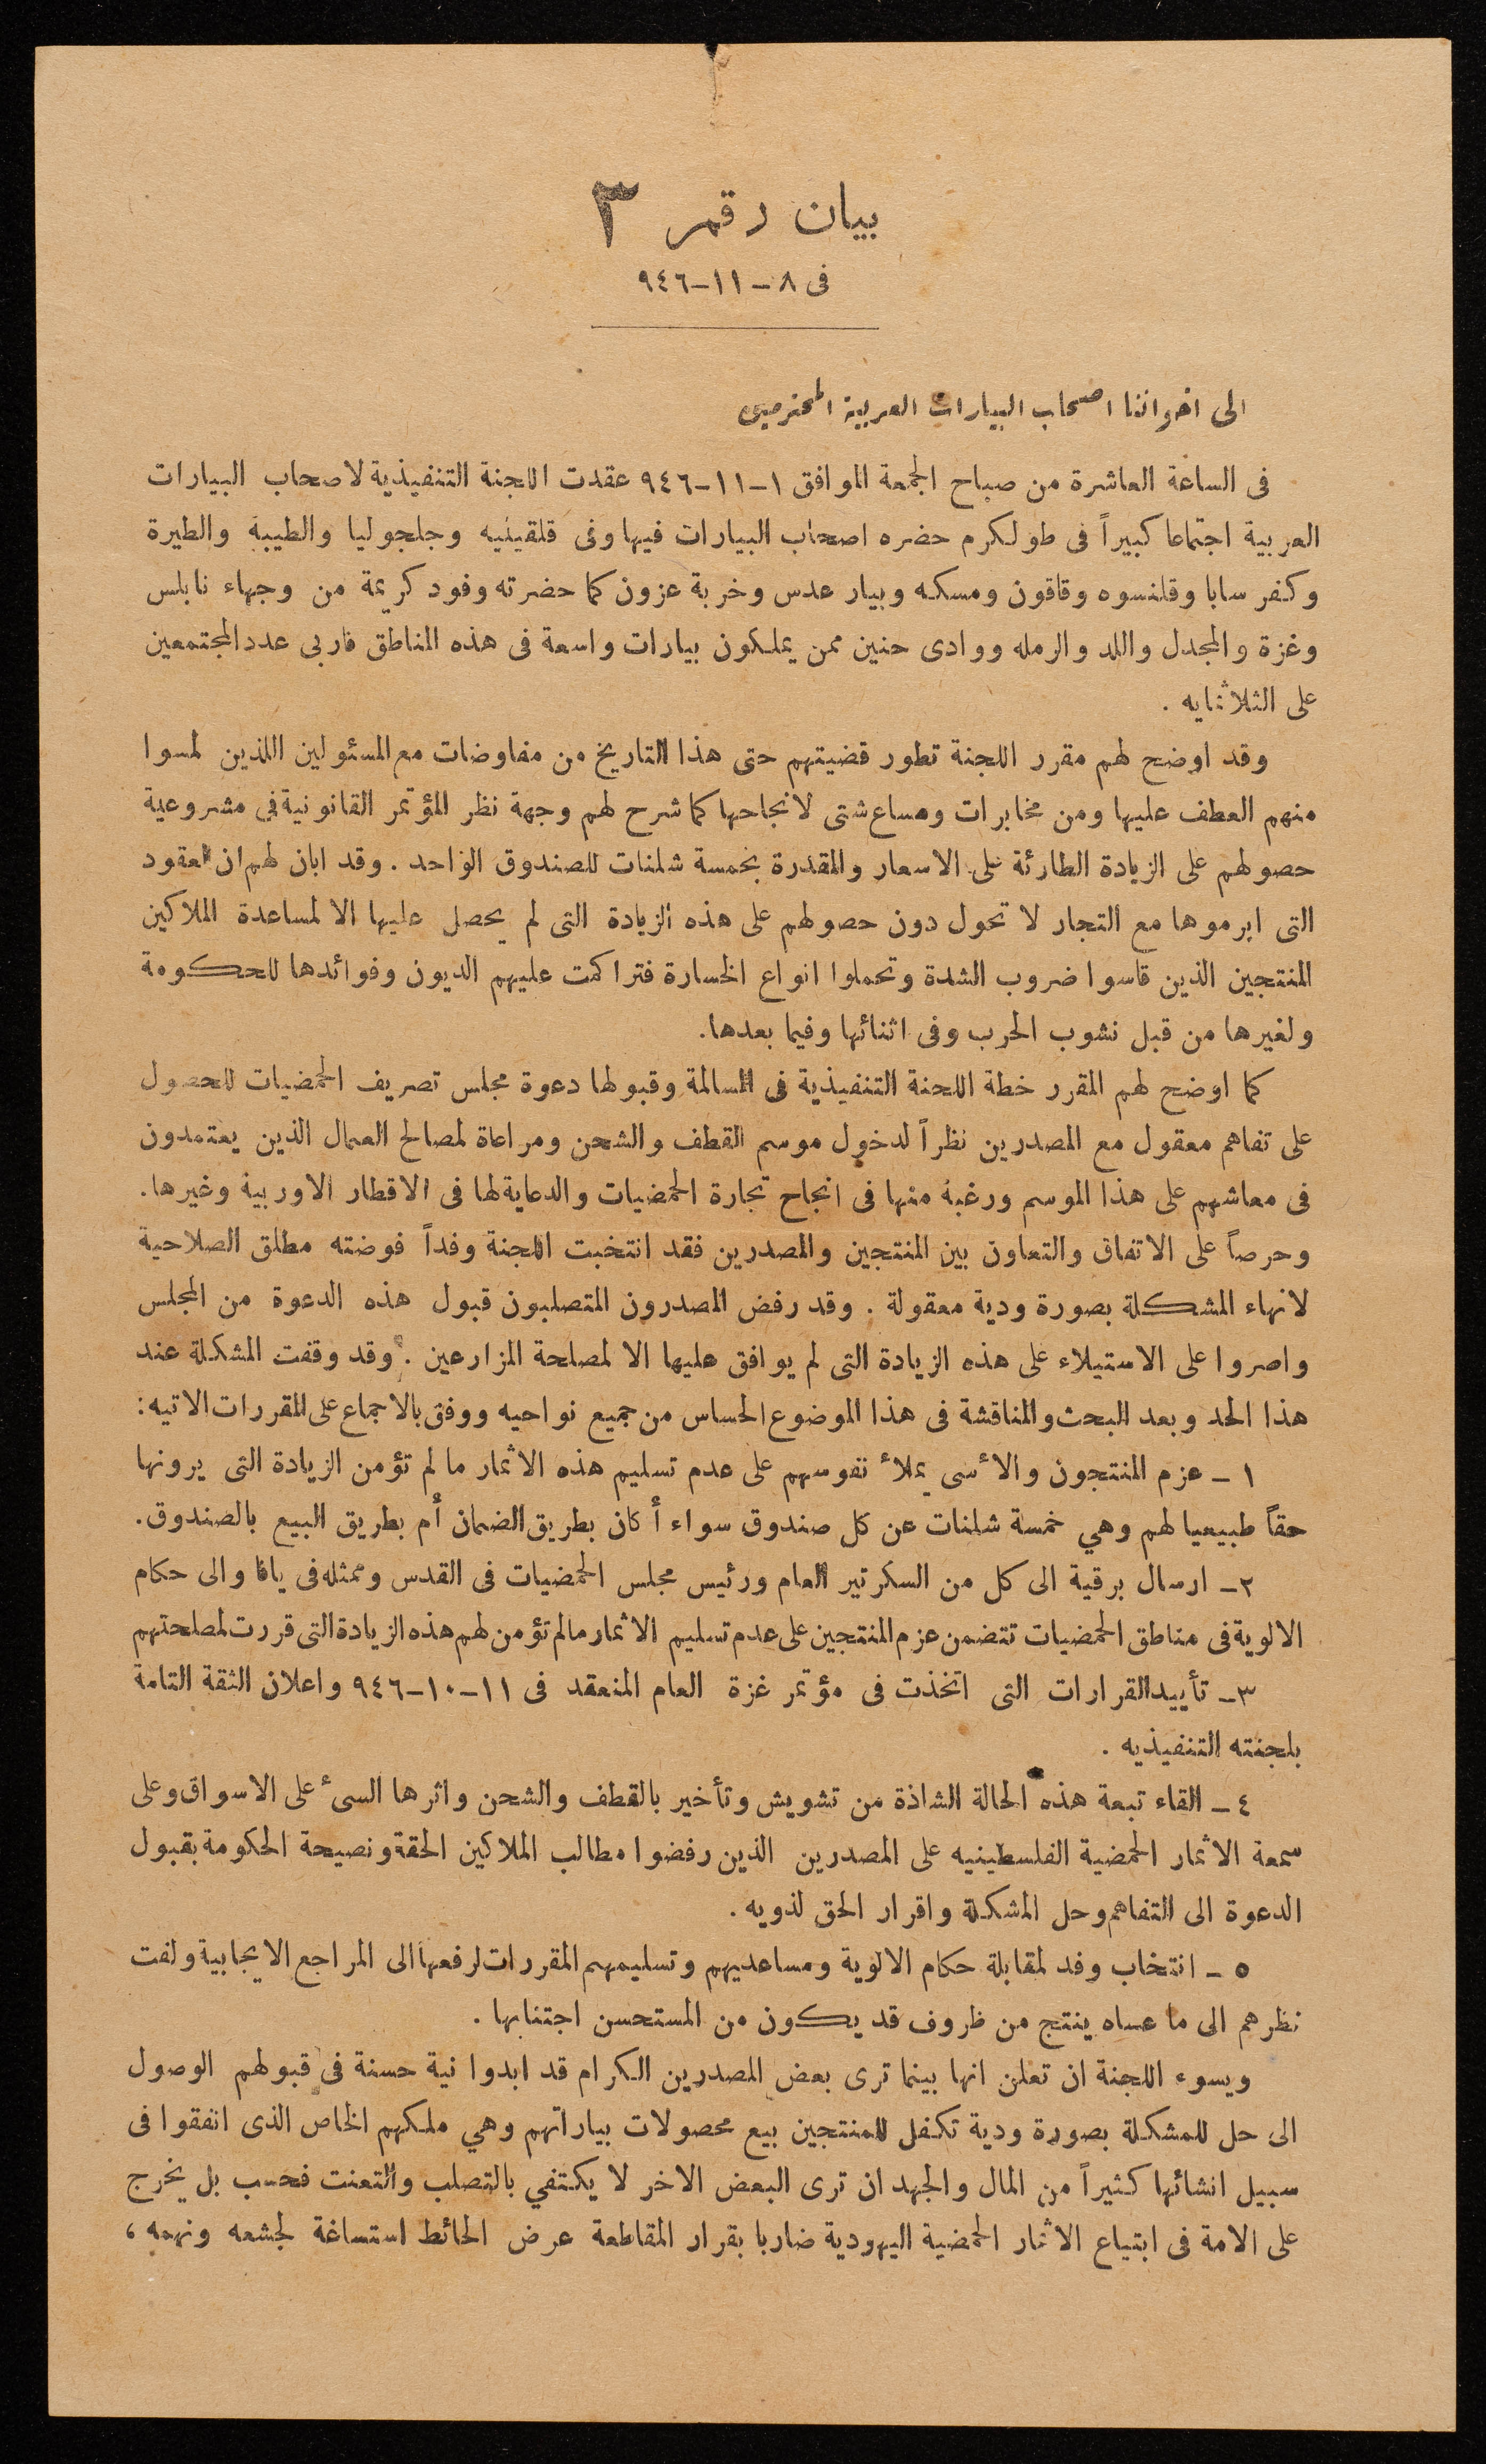 بيان رقم ٣
فى ٨-١١-٩٤٦
الى اخواننا اصحاب البيارات العربية المحترمين
فى الساعة العاشرة من صباح الجمعة الموافق ١-١١-٩٤٦ عقدت اللجنة التنفيذية لاصحاب البيارات
العربية اجتماعا كبيراً فى طولكرم حضره اصحاب البيارات فيها وفى قلقيليه وجلجوليا والطيبة والطيرة
وكفر سابا وقلنسوه وقاقون ومسكه وبيار عدس وخربة عزون كما حضرته وفود كريمة من وجهاء نابلس
وغزة والمجدل واللد والرمله ووادى حنين ممن يملكون بيارات واسعة فى هذه المناطق فاربى عدد المجتمعين
على الثلاثمايه .
وقد اوضح لهم مقرر اللجنة تطور قضيتهم حتى هذا التاريخ من مفاوضات مع المسئولين اللذين لمسوا
منهم العطف عليها ومن مخابرات ومساع شتى لانجاحها كما شرح لهم وجهة نظر المؤتمر القانونية في مشروعية
حصولهم على الزيادة الطارئة على الاسعار والمقدرة بخمسة شلنات للصندوق الواحد . وقد ابان لهم ان العقود
التى ابرموها مع التجار لا تحول دون حصولهم على هذه الزيادة التى لم يحصل عليها الا لمساعدة الملاكين
المنتجين الذين قاسوا ضروب الشدة وتحملوا انواع الخسارة فتراكمت عليهم الديون وفوائدها للحكومة
ولغيرها من قبل نشوب الحرب وفى اثنائها وفيما بعدها.
كما اوضح لهم المقرر خطة اللجنة التنفيذية فى المسالمة وقبولها دعوة مجلس تصريف الحمضيات للحصول
على تفاهم معقول مع المصدرين نظراً لدخول موسم القطف والشحن ومراعاة لمصالح العمال الذين يعتمدون
فى معاشهم على هذا الموسم ورغبة منها فى انجاح تجارة الحمضيات والدعاية لها فى الاقطار الاوربية وغيرها.
وحرصاً على الاتفاق والتعاون بين المنتجين والمصدرين فقد انتخبت اللجنة وفداً فوضته مطلق الصلاحية
لانهاء المشكلة بصورة ودية معقولة . وقد رفض المصدرون المتصلبون قبول هذه الدعوة من المجلس
واصروا على الاستيلاء على هذه الزيادة التى لم يوافق عليها الا لمصلحة المزارعين . وقد وقفت المشكلة عند
هذا الحد وبعد البحث والمناقشة فى هذا الموضوع الحساس من جميع نواحيه ووفق بالاجماع على المقررات الاتيه:
١ - عزم المنتجون والأسى يملأ نفوسهم على عدم تسليم هذه الاثمار ما لم تؤمن الزيادة التى يرونها
حقاً طبيعيا لهم وهي خمسة شلنات عن كل صندوق سواء أكان بطريق الضمان أم بطريق البيع بالصندوق.
٢- ارسال برقية الى كل من السكرتير العام ورئيس مجلس الحمضيات فى القدس وممثله فى يافا والى حكام
الالوية فى مناطق الحمضيات تتضمن عزم المنتجين على عدم تسليم الاثمار مالم تؤمن لهم هذه الزيادة التى قررت لمصلحتهم
٣- تأييد القرارات التى اتخذت فى مؤتمر غزة العام المنعقد فى ١١-١٠-٩٤٦ واعلان الثقة التامة
بلجنته التنفيذيه .
٤ - القاء تبعة هذه الحالة الشاذة من تشويش وتأخير بالقطف والشحن واثرها السىء على الاسواق وعلى
سمعة الاثمار الحمضية الفلسطينيه على المصدرين الذين رفضوا مطالب الملاكين الحقة ونصيحة الحكومة بقبول
الدعوة الى التفاهم وحل المشكلة واقرار الحق لذويه .
٥ - انتخاب وفد لمقابلة حكام الالوية ومساعديهم وتسليمهم المقررات لرفعها الى المراجع الايجابية ولفت
نظرهم الى ما عساه ينتج من ظروف قد يكون من المستحسن اجتنابها .
ويسوء اللجنة ان تعلن انها بينما ترى بعض المصدرين الكرام قد ابدوا نية حسنة فى قبولهم الوصول
الى حل للمشكلة بصورة ودية تكفل للمنتجين بيع محصولات بياراتهم وهي ملكهم الخاص الذى انفقوا فى
سبيل انشائها كثيراً من المال والجهد ان ترى البعض الاخر لا يكتفي بالتصلب والتعنت فحسب بل يخرج
على الامة فى ابتياع الاثمار الحمضية اليهودية ضاربا بقرار المقاطعة عرض الحائط استساغة لجشعه ونهمه ،